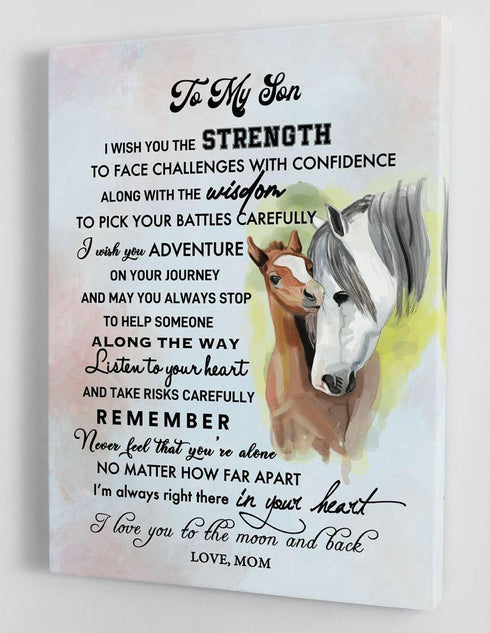 To My Son
I WISH YOU THE STRENGTH
TO FACE CHALLENGES WITH CONFIDENCE
ALONG WITH THE wisdom
TO PICK YOUR BATTLES CAREFULLY
I wish you ADVENTURE
ON YOUR JOURNEY
AND MAY YOU ALWAYS STOP
TO HELP SOMEONE
ALONG THE WAY
Listen to your heart
AND TAKE RISKS CAREFULLY
REMEMBER
Never feel that you're alone
NO MATTER HOW FAR APART
I'm always right there in your heart
I love you to the moon and back
LOVE, MOM